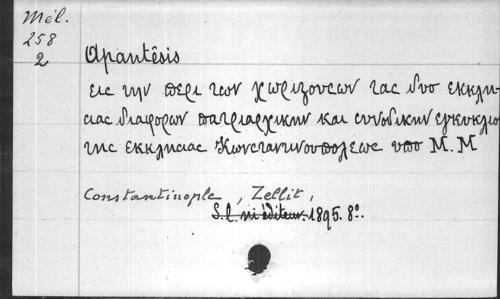 Mél.
258
2
Apantêsis
εις την περι των χωριζουσων τας δυο εκκλη-
σιας διαφορων πατριαρχικην και συνοδικην εγκυκλιο
της εκκλησιας Κωνσταντινουπολεως υπο Μ. Μ
Constantinople, Zellit,
S. l. ni éditeur. 1895. 8º.